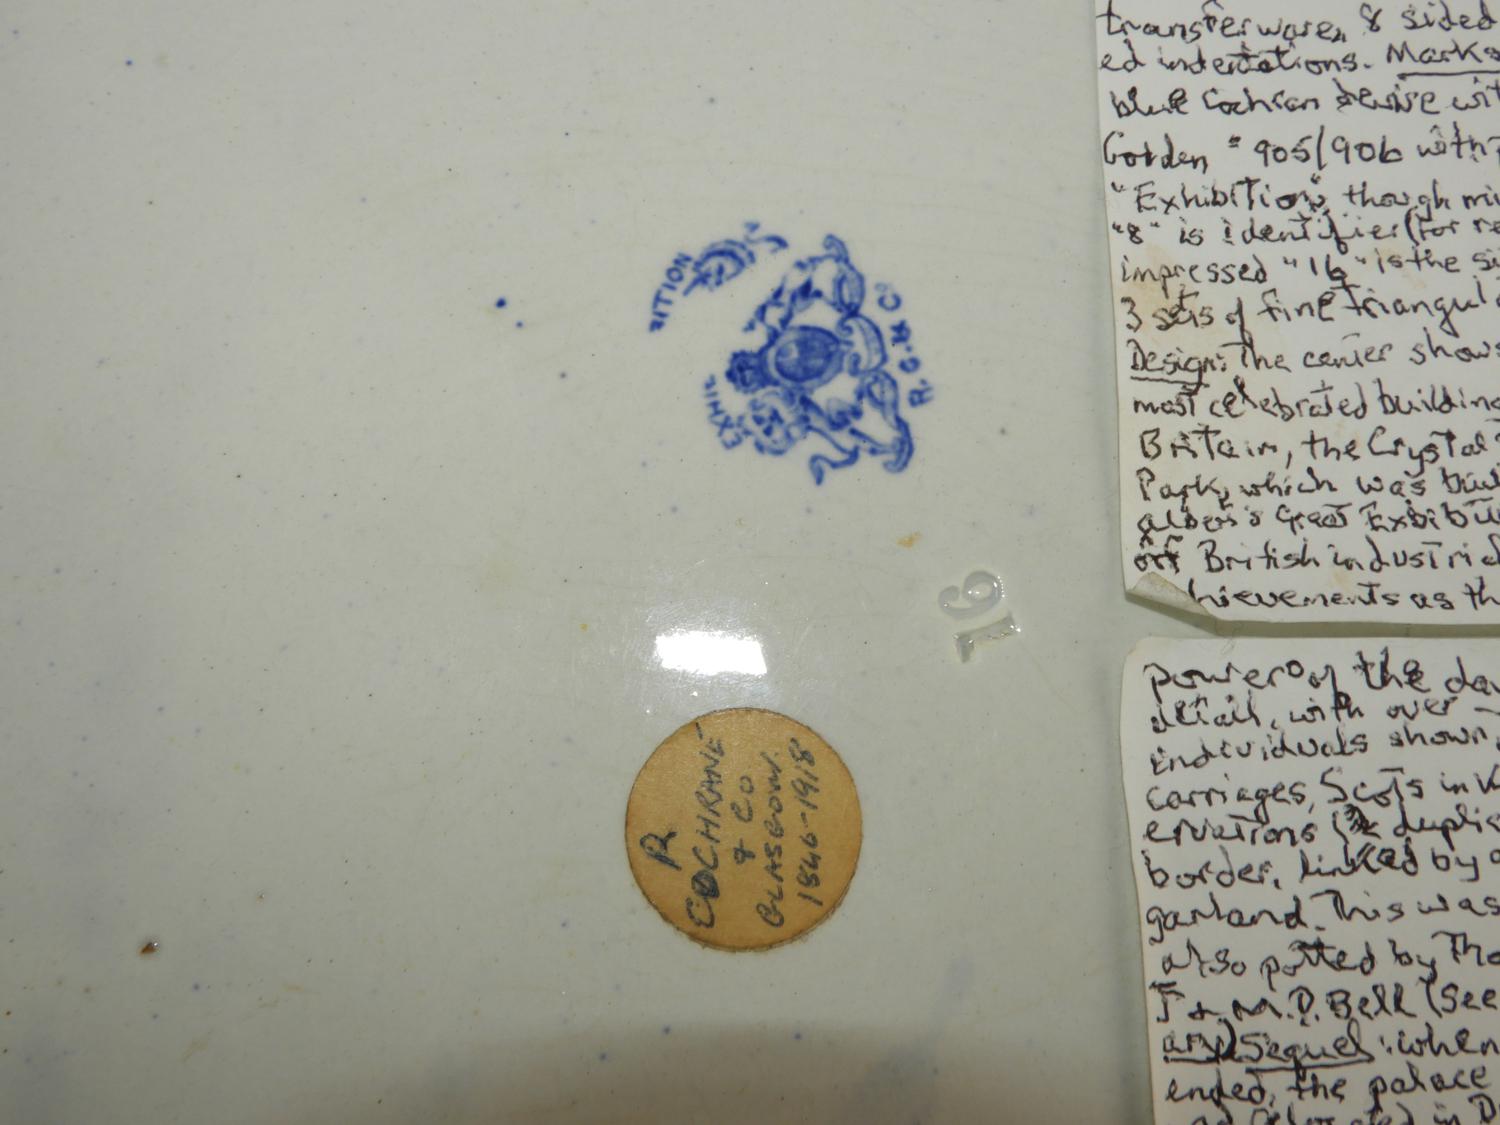 EXHIBITION
R. C. & Co
16
R
COCHRANE
& CO
GLASGOW.
1846-1918
transferware, 8 sided
ed indentations. Marks
blue Cochran device wit
Godden # 905/906 with
"Exhibition", though mi
"8" is identifier (for re
impressed "16" is the si
3 sets of fine triangul
Design: The center shows
most celebrated building
Britain, the Crystal
Park, which was buil
Albert's Great Exhibiti
of British industrial
hievements as th
power of the day
detail, with over
individuals shown,
carriages, Scots in
ervations duplic
border, linked by
garland. This was
also potted by Tho
J & M. P. Bell (See
any) Sequel: when
ended, the palace
relocated in